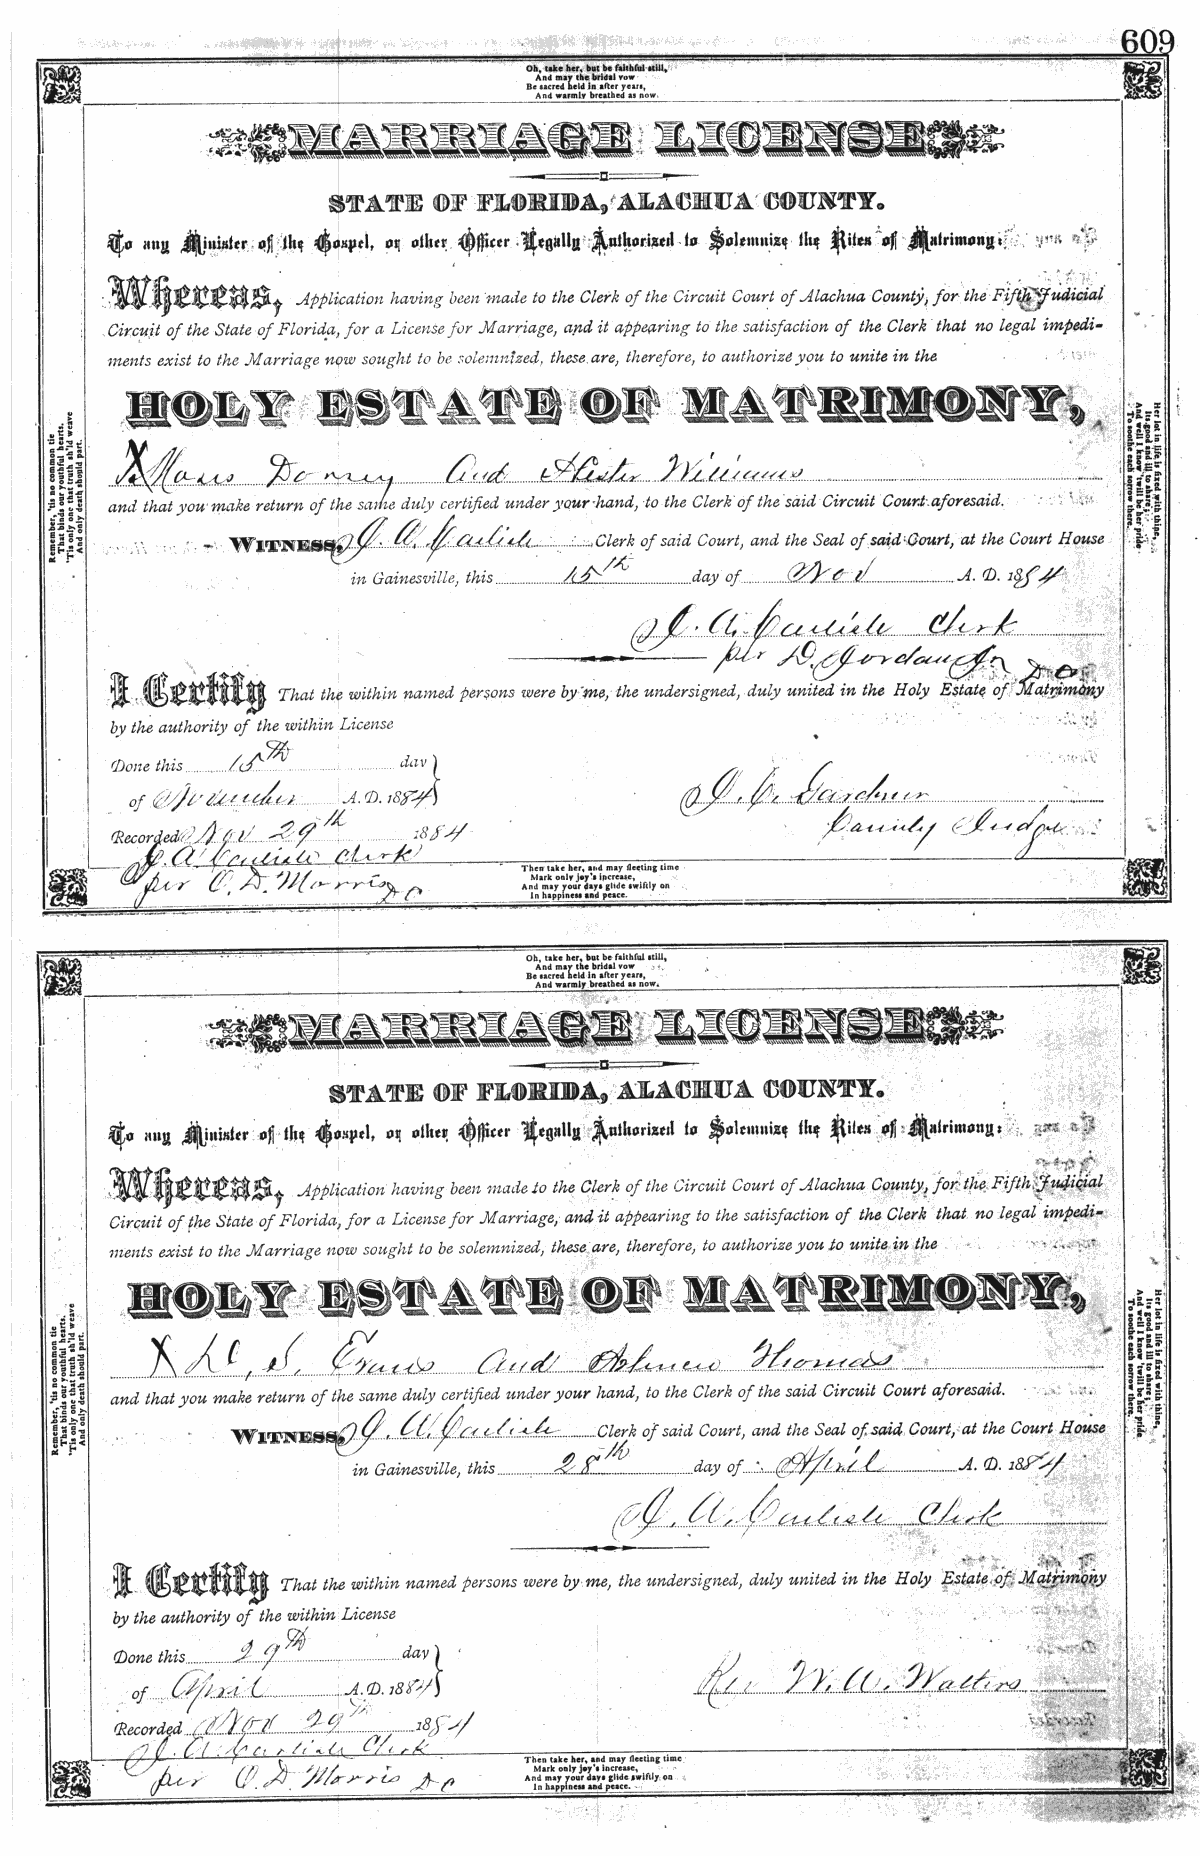 609
Oh, take her, but be faithful still,
And may the bridal vow
Be sacred held in after years,
And warmly breathed as now.
MARRIAGE LICENSE
STATE OF FLORIDA, ALACHUA COUNTY.
To any Minister of the Gospel, or other Officer Legally Authorized to Solemnize the Rites of Matrimony:
Whereas, Application having been made to the Clerk of the Circuit Court of Alachua County, for the Fifth Judicial
Circuit of the State of Florida, for a License for Marriage, and it appearing to the satisfaction of the Clerk that no legal impedi-
ments exist to the Marriage now sought to be solemnized, these are, therefore, to authorize you to unite in the
HOLY ESTATE OF MATRIMONY,
X Moses Dorsey and Hester Williams
and that you make return of the same duly certified under your hand, to the Clerk of the said Circuit Court aforesaid.
WITNESS, J. A. Carlisle Clerk of said Court, and the Seal of said Court, at the Court House
in Gainesville, this 15th day of Nov A. D. 1884
J. A. Carlisle Clerk
per D. Jordan Jr DC
I Certify That the within named persons were by me, the undersigned, duly united in the Holy Estate of Matrimony
by the authority of the within License
Done this 15th day
of November A. D. 1884
J. C. Gardner
County Judge
Recorded Nov 29th 1884
J. A. Carlisle Clerk
per O. D. Morris DC
Then take her, and may fleeting time
Mark only joy's increase,
And may your days glide swiftly on
In happiness and peace.
Remember, 'tis no common tie
That binds our youthful hearts,
'Tis only one that truth sh'ld weave
And only death should part.
Her lot in life is fixed with thine,
Its good and ill to share,
And well I know 'twill be her pride
To soothe each sorrow there.
Oh, take her, but be faithful still,
And may the bridal vow
Be sacred held in after years,
And warmly breathed as now.
MARRIAGE LICENSE
STATE OF FLORIDA, ALACHUA COUNTY.
To any Minister of the Gospel, or other Officer Legally Authorized to Solemnize the Rites of Matrimony:
Whereas, Application having been made to the Clerk of the Circuit Court of Alachua County, for the Fifth Judicial
Circuit of the State of Florida, for a License for Marriage, and it appearing to the satisfaction of the Clerk that no legal impedi-
ments exist to the Marriage now sought to be solemnized, these are, therefore, to authorize you to unite in the
HOLY ESTATE OF MATRIMONY,
X S. Evans and Thomas
and that you make return of the same duly certified under your hand, to the Clerk of the said Circuit Court aforesaid.
WITNESS, J. A. Carlisle Clerk of said Court, and the Seal of said Court, at the Court House
in Gainesville, this 28th day of April A. D. 1884
J. A. Carlisle Clerk
I Certify That the within named persons were by me, the undersigned, duly united in the Holy Estate of Matrimony
by the authority of the within License
Done this 29th day
of April A. D. 1884
Rev W. A. Walters
Recorded Nov 29th 1884
J. A. Carlisle Clerk
per O. D. Morris DC
Then take her, and may fleeting time
Mark only joy's increase,
And may your days glide swiftly on
In happiness and peace.
Remember, 'tis no common tie
That binds our youthful hearts,
'Tis only one that truth sh'ld weave
And only death should part.
Her lot in life is fixed with thine,
Its good and ill to share,
And well I know 'twill be her pride
To soothe each sorrow there.